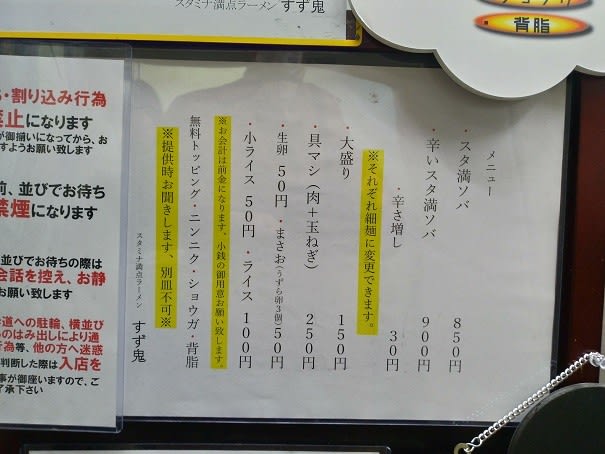 スタミナ満点ラーメン すず鬼
背脂
メニュー
・スタ満ソバ 850円
・辛いスタ満ソバ 900円
・辛さ増し 30円
※それぞれ細麺に変更できます。
・大盛り 150円
・具マシ(肉+玉ねぎ) 250円
・生卵 50円 ・まさお(うずら卵3個)50円
・小ライス 50円 ・ライス 100円
※お会計は前金になります。小銭の御用意お願い致します。
無料トッピング・ニンニク・ショウガ・背脂
※提供時お聞きします、別皿不可※
スタミナ満点ラーメン すず鬼
・割り込み行為
禁止になります
が御揃いになってから、お
すようお願い致します
前、並びでお待ち
禁煙になります
並びでお待ちの際は
会話を控え、お静
お願い致します
道への駐輪、横並び
のはみ出しにより通
行為等、他の方へ迷惑
判断した際は入店を
事が御座いますので、ご
了承下さい